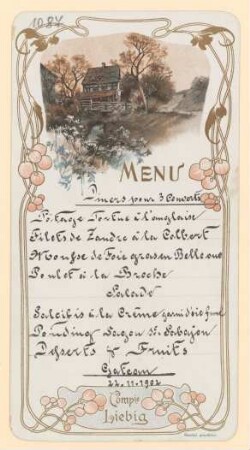 1087
MENU
Diners pour 3 Couverts
Potage Tortue à l'anglaise
Filets de Zandre à la Colbert
Mousse de Foie gras en Bellevue
Poulet à la Broche
Salade
Salcifis à la Crème garni de
Pouding Sagou St. Sabajon
Desserts & Fruits
Gateau
22.11.1902
Compie
Liebig